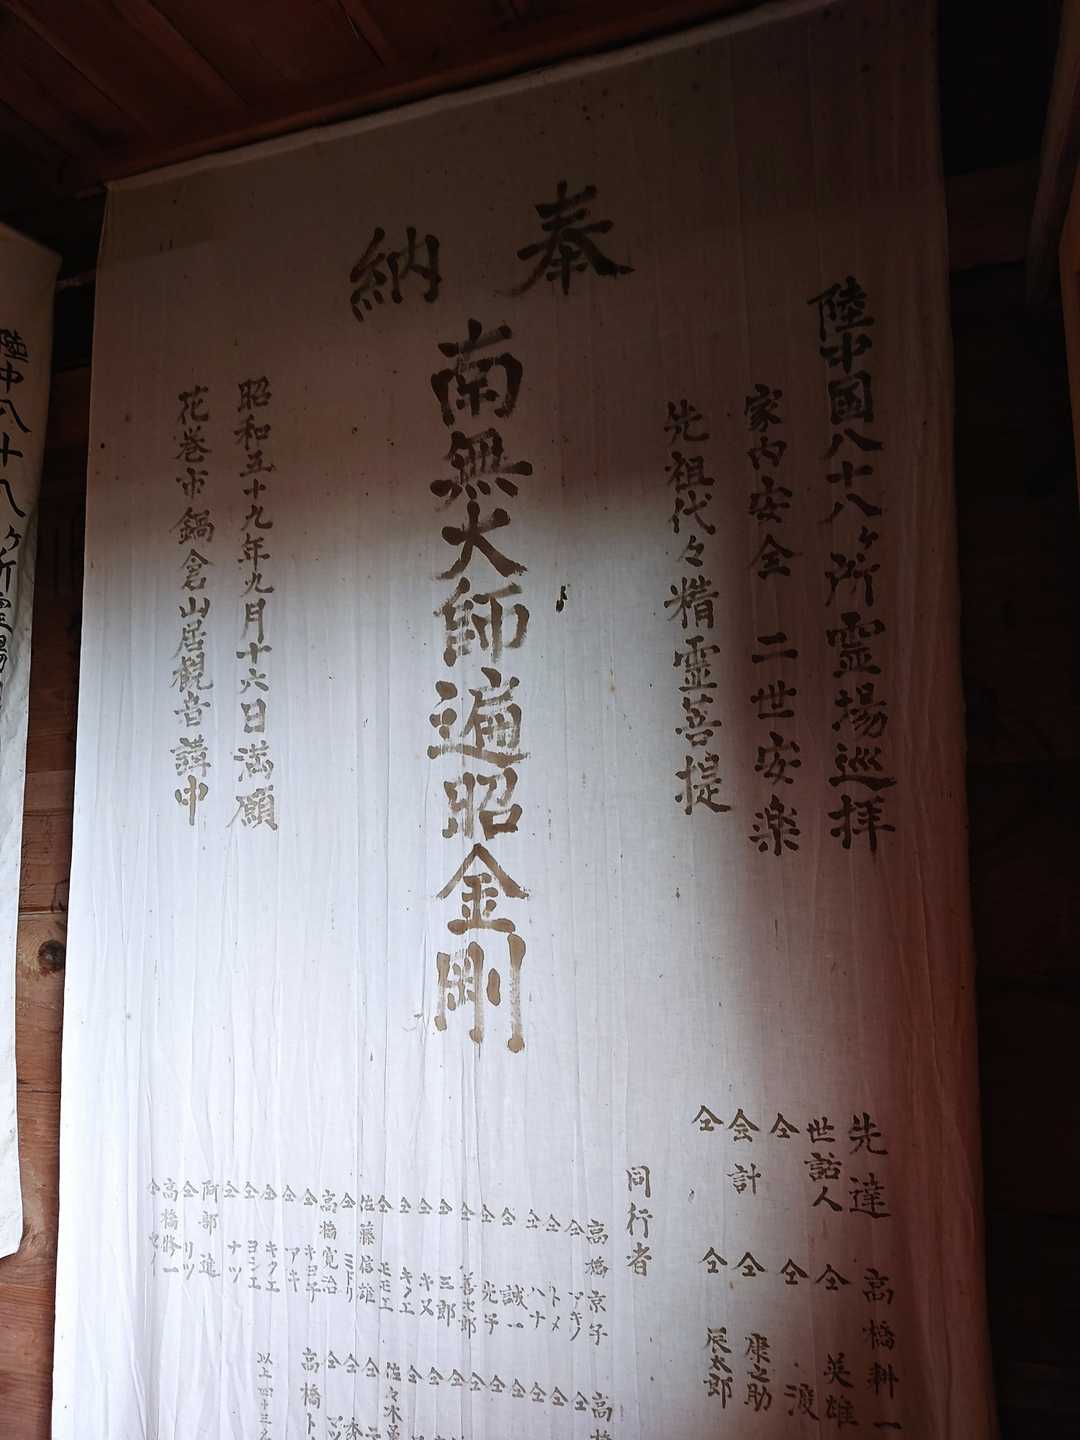 奉納
陸中國八十八ヶ所霊場巡拝
家内安全 二世安楽
先祖代々精霊菩提
南無大師遍昭金剛
昭和五十九年九月十六日満願
花巻市鍋倉山居観音講中
先達 高橋耕一
世話人 仝 英雄
仝 仝 渡
会計 仝 康之助
仝 仝 辰太郎
同行者
高橋京子
仝 マキノ
仝 トメ
仝 ハナ
仝 誠一
仝 光子
仝 善次郎
仝 三郎
仝 キヌ
仝 キクエ
仝 モモエ
佐藤信雄
仝 ミドリ
高橋寛治
仝 キヨ子
仝 アキ
仝 キクエ
仝 ヨシエ
仝 ナツ
阿部進
仝 リツ
高橋
仝
高橋
仝
仝
仝
仝
仝
仝
仝
仝
佐々木
仝
仝
仝
高橋ト
以上四十三名
陸中八十八ヶ所霊場